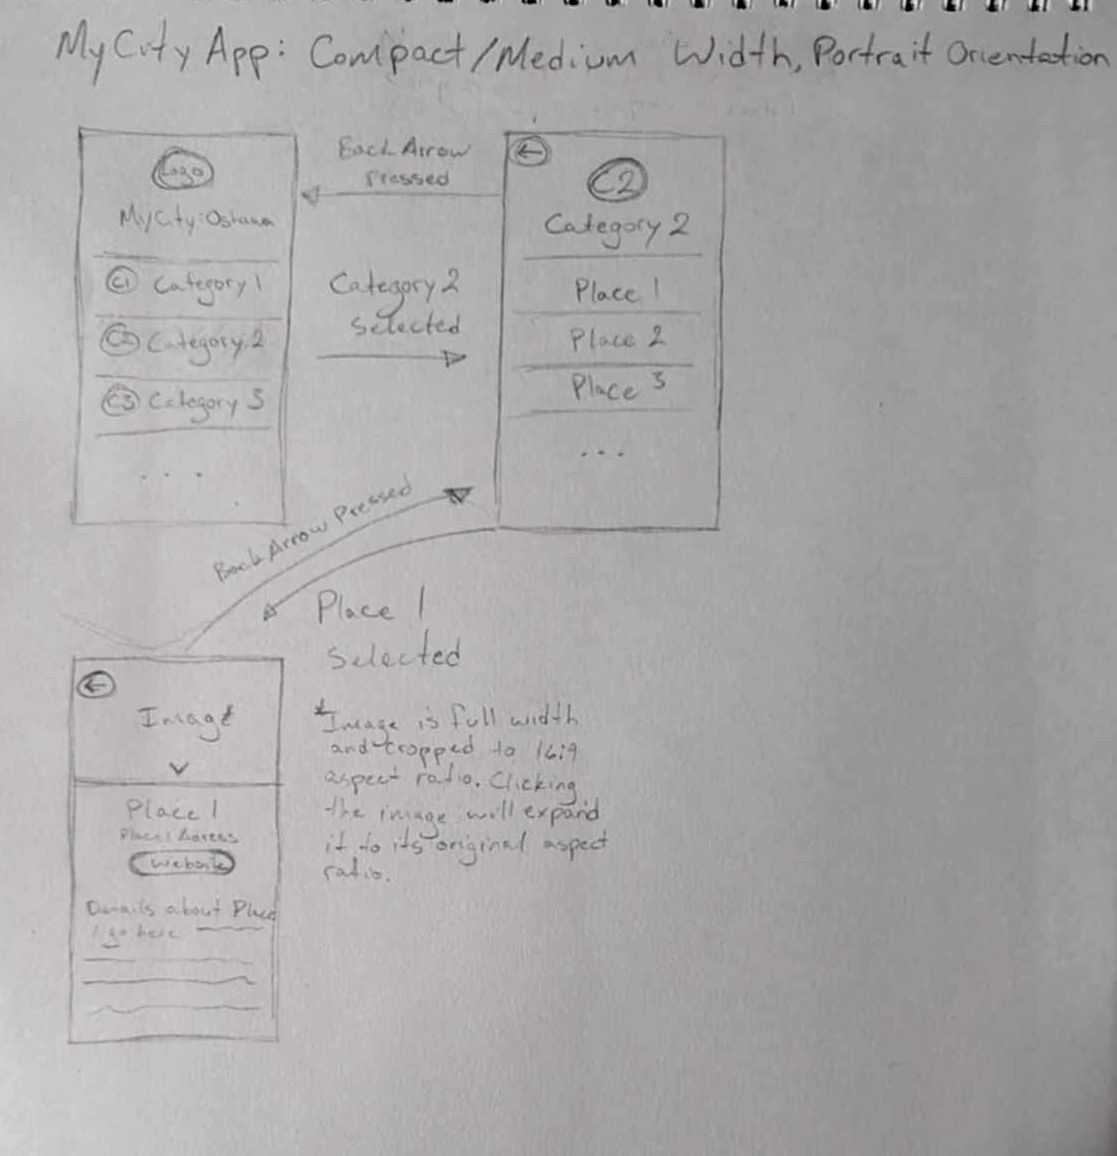 MyCity App: Compact/Medium Width, Portrait Orientation
Logo
MyCity: Oshawa
C1 Category 1
C2 Category 2
C3 Category 3
. . .
Back Arrow
Pressed
Category 2
Selected
←
C2
Category 2
Place 1
Place 2
Place 3
. . .
Back Arrow Pressed
Place 1
Selected
←
Image
Place 1
Place 1 Address
Website
Details about Place
1 go here
*Image is full width
and cropped to 16:9
aspect ratio. Clicking
the image will expand
it to its original aspect
ratio.